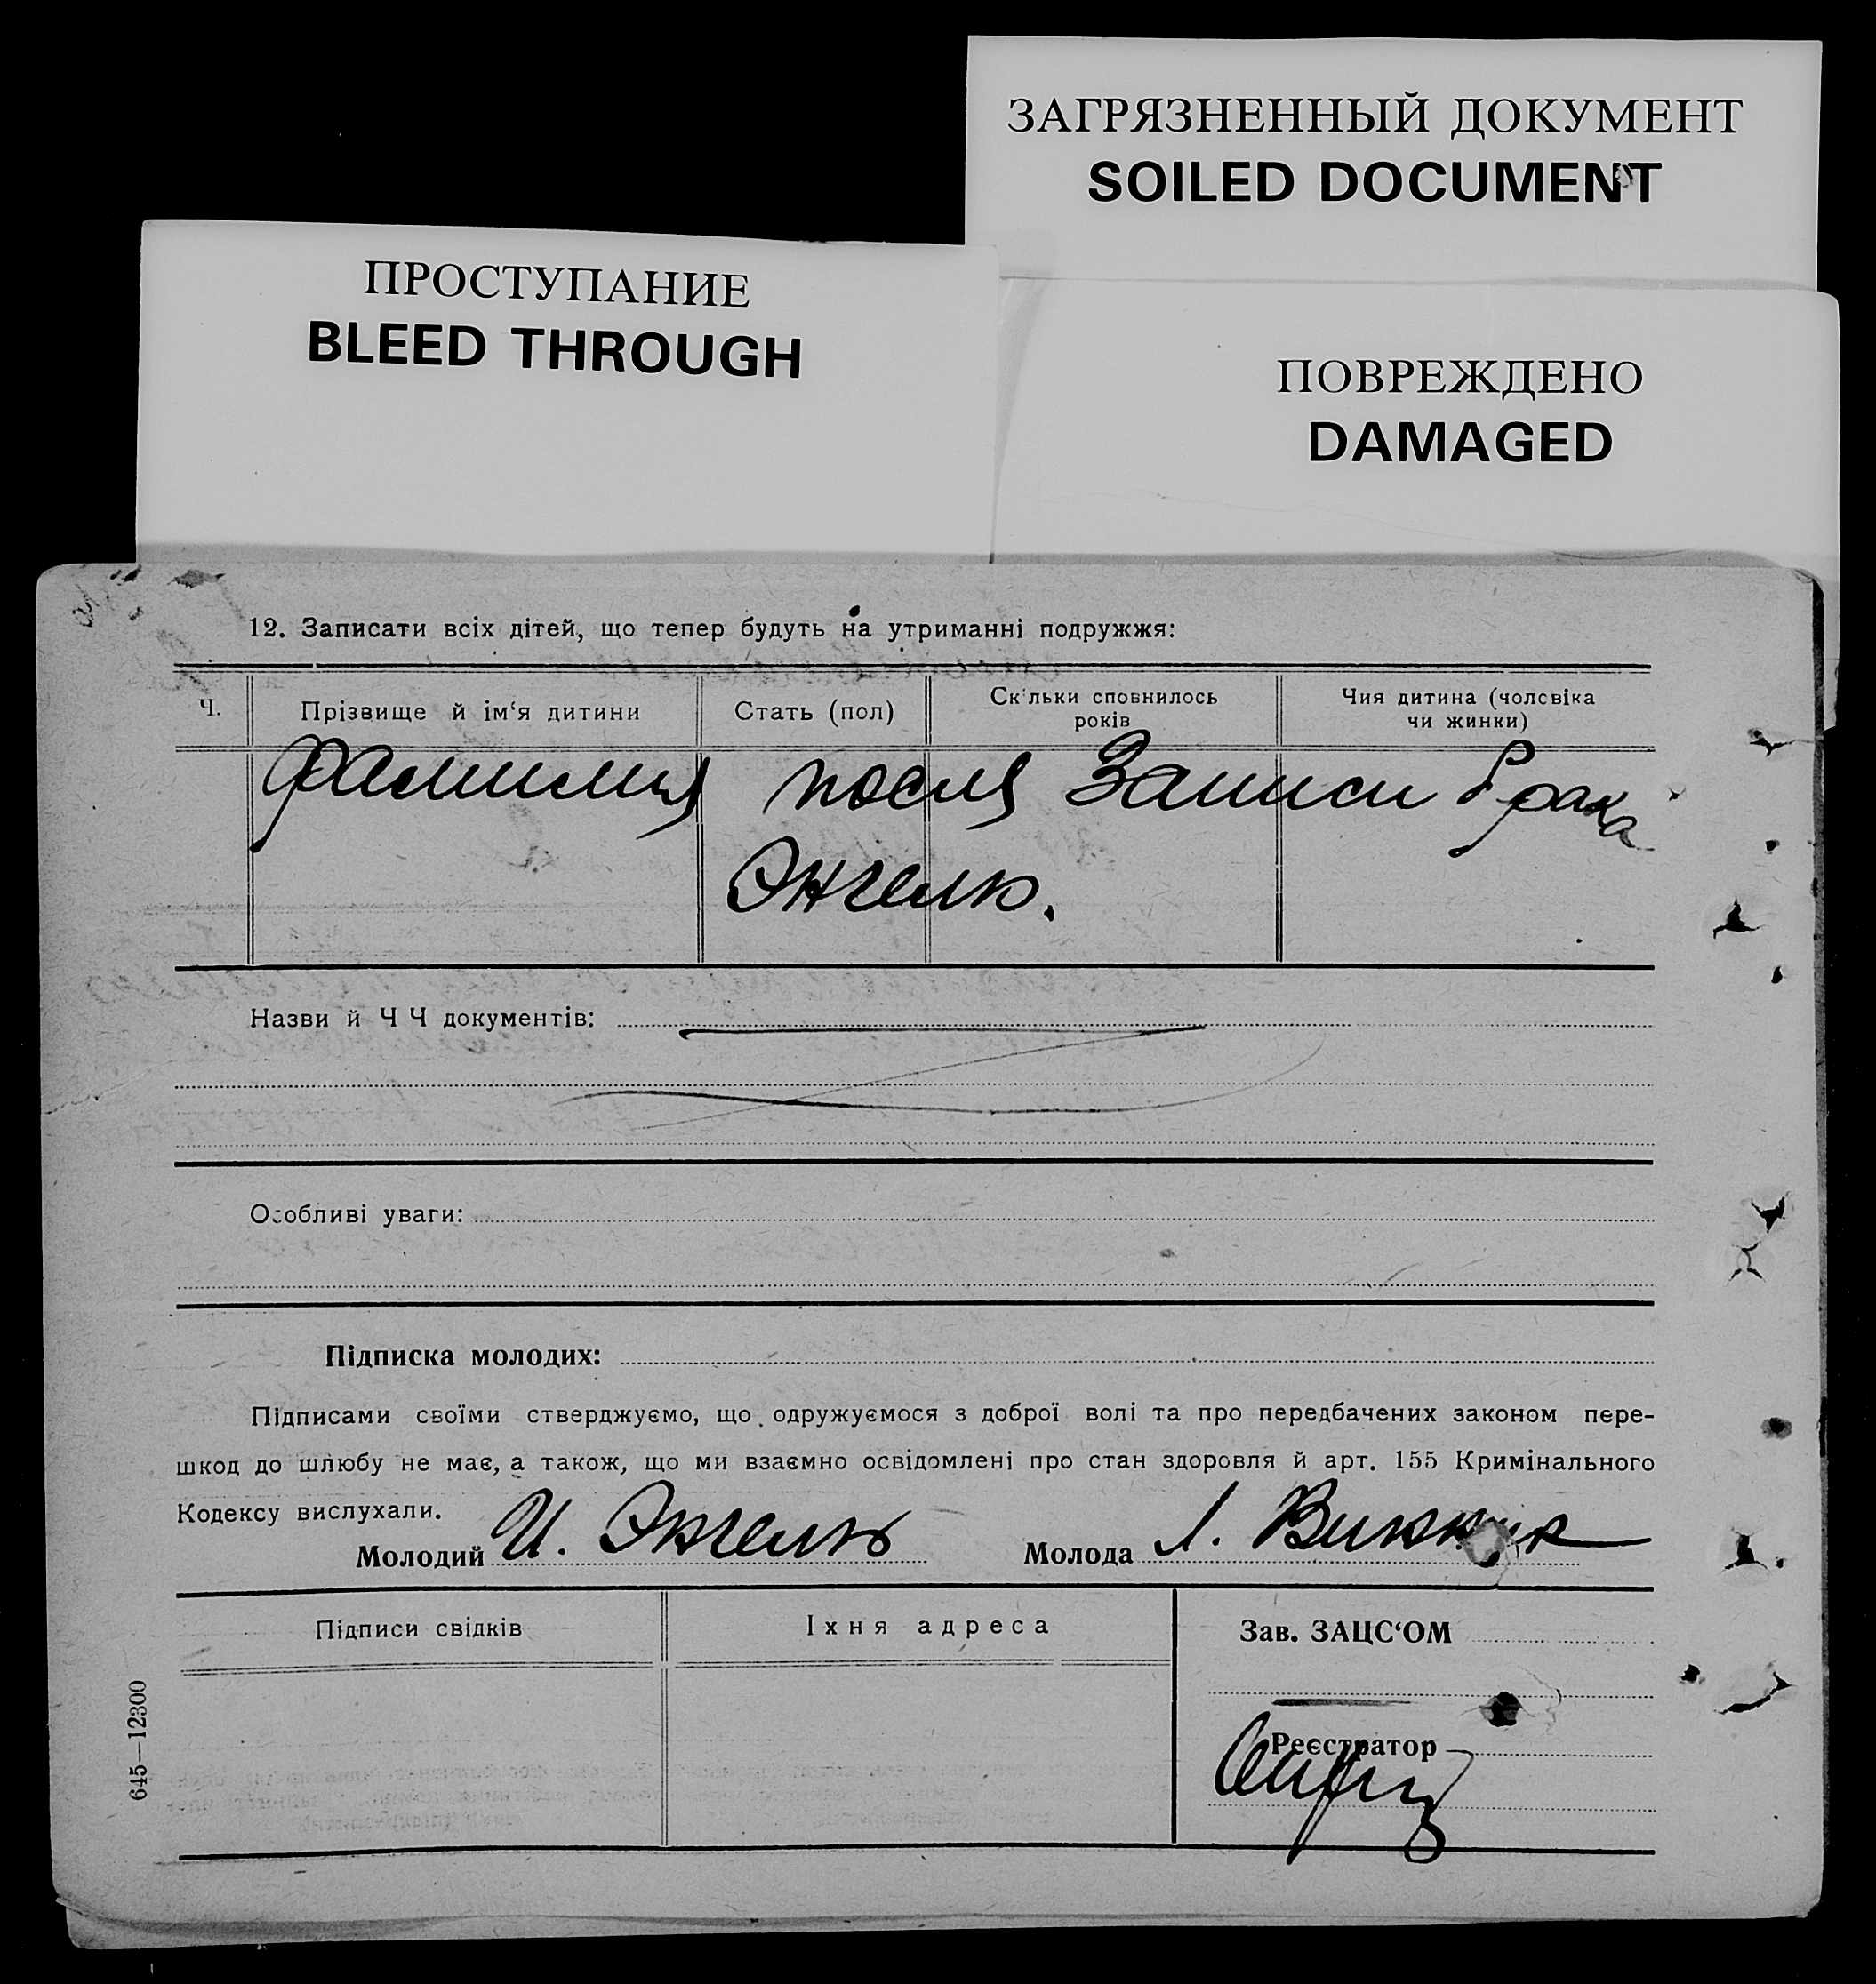 ЗАГРЯЗНЕННЫЙ ДОКУМЕНТ
SOILED DOCUMENT
ПРОСТУПАНИЕ
BLEED THROUGH
ПОВРЕЖДЕНО
DAMAGED
12. Записати всіх дітей, що тепер будуть на утриманні подружжя:
Ч.
Прізвище й ім‘я дитини
Стать (пол)
Скільки сповнилось
років
Чия дитина (чоловіка
чи жинки)
Фамилия после Записи брака
Энгель.
Назви й Ч Ч документів:
Особливі уваги:
Підписка молодих:
Підписами своїми стверджуємо, що одружуємося з доброї волі та про передбачених законом пере-
шкод до шлюбу не має, а також, що ми взаємно освідомлені про стан здоровля й арт. 155 Кримінального
Кодексу вислухали.
Молодий И. Энгель Молода Л.
Підписи свідків
Їхня адреса
Зав. ЗАЦС‘ОМ
Реєстратор
645—12300